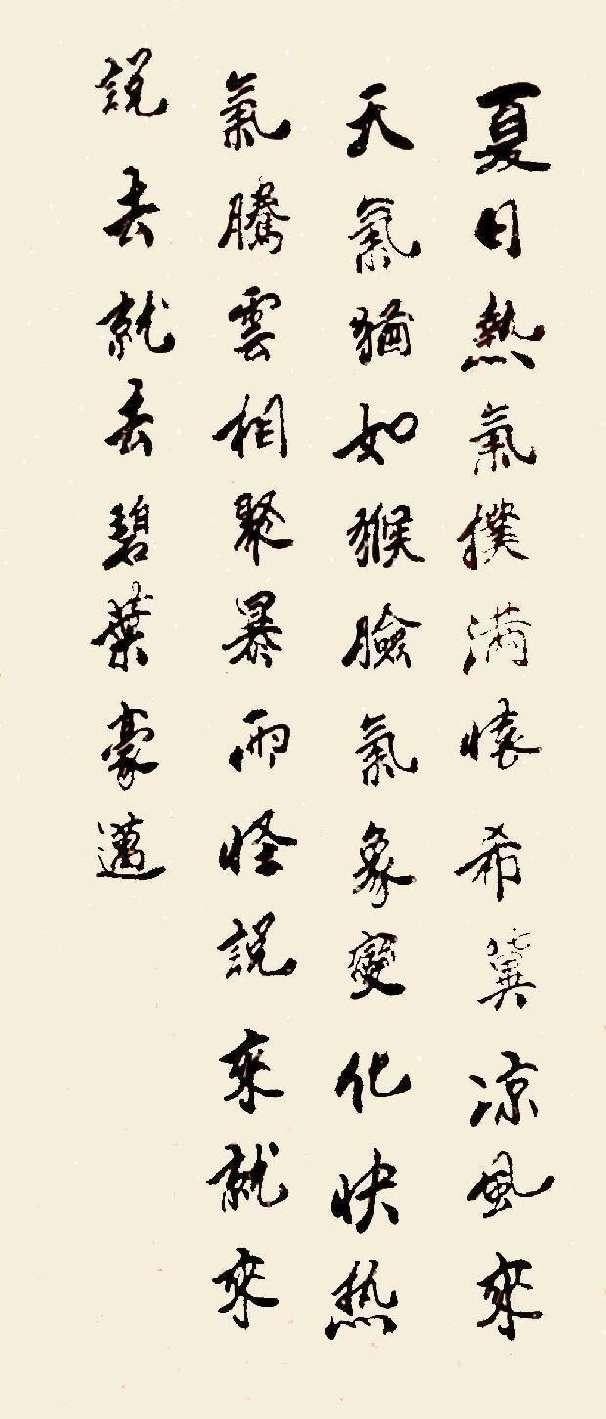 夏日熱氣撲满懷希冀凉風來
天氣猶如猴臉氣象變化快热
氣騰雲相聚暴雨怪説來就來
説去就去碧葉豪邁